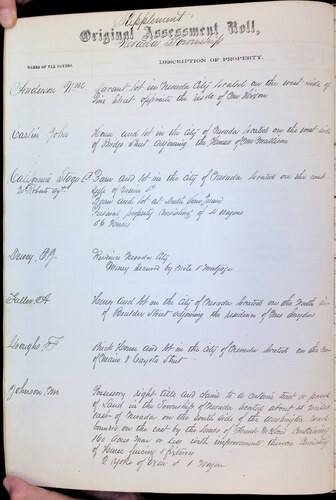 Supplement
Original Assessment Roll,
Nevada Township
NAMES OF TAX PAYERS.
DESCRIPTION OF PROPERTY.
Anderson Wm
Vacant lot in Nevada City located on the west side of
Pine Street opposite the
Carlin John
House and lot in the city of Nevada located on the west side
of Bridge Street adjoining the House of Mrs
California Stage Co
Agt.
Barn and lot in the city of Nevada located on the east
side of Main St
Barn and lot at South San Juan
Personal property consisting of 4 wagons
56 Horses
B.J.
Residence Nevada City
Money secured by note & mortgage
Fuller
House and lot in the City of Nevada located on the North side
of Boulder Street adjoining the residence of Mrs
Brick House and lot in the City of Nevada located on the
of Main & Coyote Street
Johnson, Wm
Possessory right title and claim to a certain tract or parcel
of Land in the Township of Nevada located about 4 miles
east of Nevada on the south side of the Washington road
bounded on the east by the lands of containing
160 acres more or less with improvements thereon consisting
of House fencing & fixtures
2 yoke of Oxen & 1 Wagon